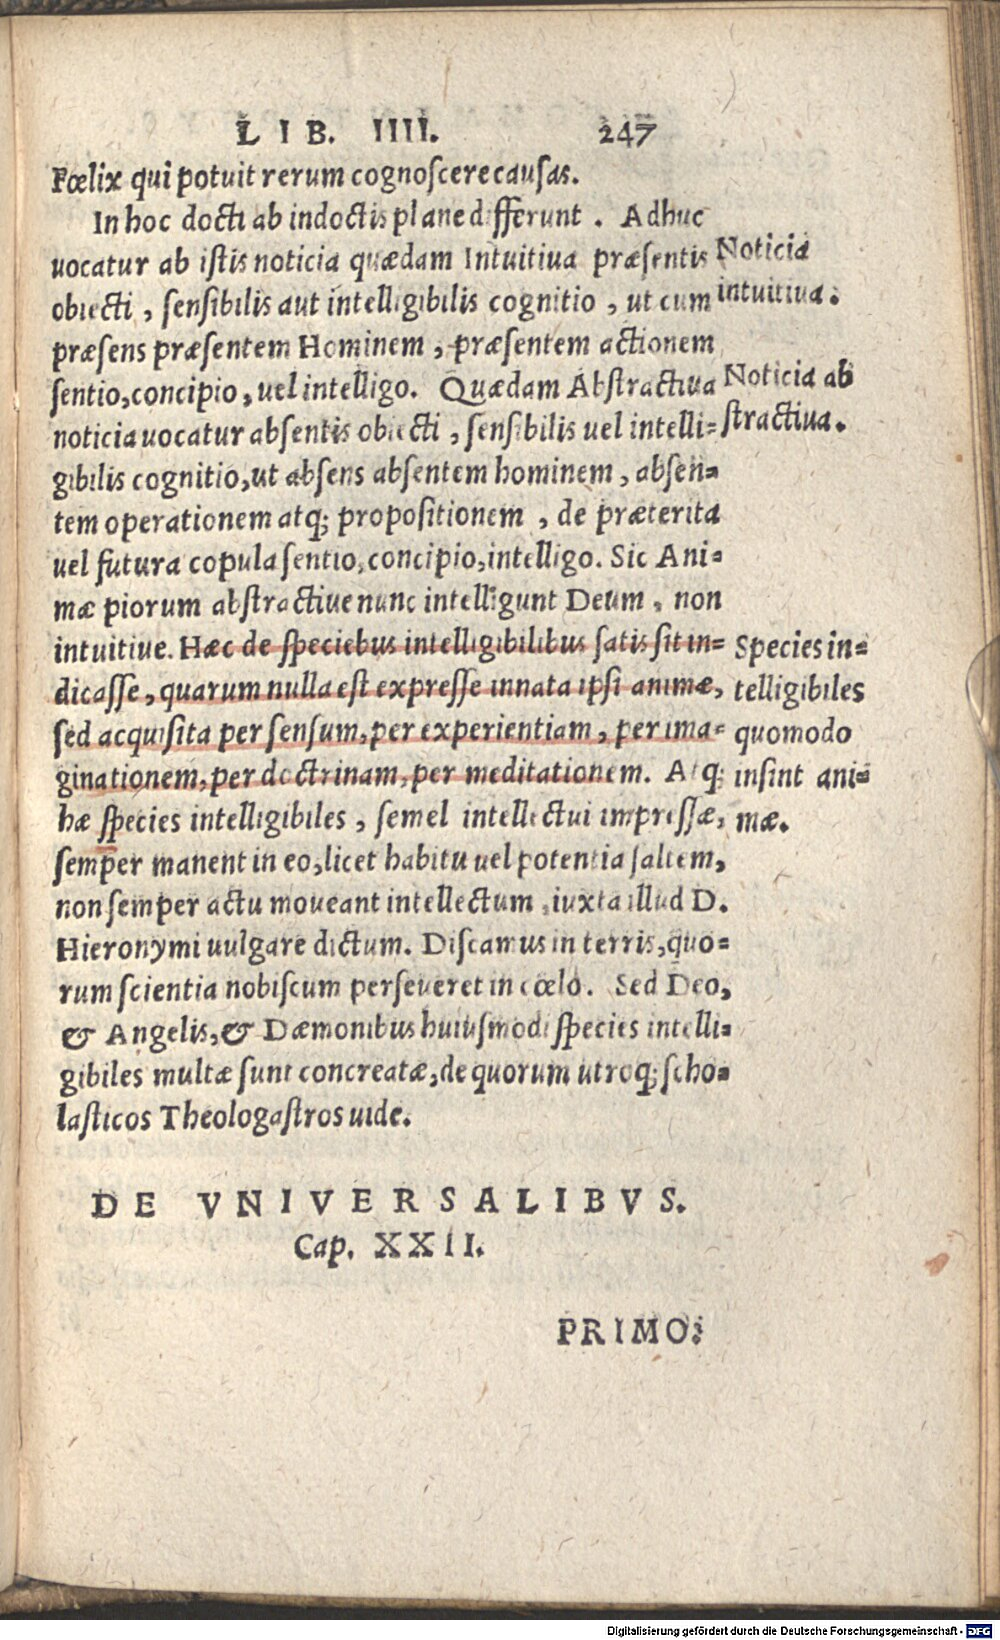 LIB. IIII. 247
Fœlix qui potuit rerum cognoscere causas.
In hoc docti ab indoctis plane differunt. Adhuc
uocatur ab istis noticia quædam Intuitiua præsentis
obiecti, sensibilis aut intelligibilis cognitio, ut cum
præsens præsentem Hominem, præsentem actionem
sentio, concipio, uel intelligo. Quædam Abstractiua
noticia uocatur absentis obiecti, sensibilis uel intelli=
gibilis cognitio, ut absens absentem hominem, absen=
tem operationem atq; propositionem, de præterita
uel futura copula sentio, concipio, intelligo. Sic Ani=
mæ piorum abstractiue nunc intelligunt Deum, non
intuitiue. Hæc de speciebus intelligibilibus satis sit in=
dicasse, quarum nulla est expresse innata ipsi animæ,
sed acquisita per sensum, per experientiam, per ima=
ginationem, per doctrinam, per meditationem. Atq;
hæ species intelligibiles, semel intellectui impressæ,
semper manent in eo, licet habitu uel potentia saltem,
non semper actu moueant intellectum, iuxta illud D.
Hieronymi uulgare dictum. Discamus in terris, quo=
rum scientia nobiscum perseueret in cœlo. Sed Deo,
& Angelis, & Dæmonibus huiusmodi species intelli=
gibiles multæ sunt concreatæ, de quorum utroq; scho=
lasticos Theologastros uide.
Noticia
intuitiua.
Noticia ab
stractiua.
Species in=
telligibiles
quomodo
insint ani=
mæ.
DE VNIVERSALIBVS.
Cap. XXII.
PRIMO:
Digitalisierung gefördert durch die Deutsche Forschungsgemeinschaft - DFG